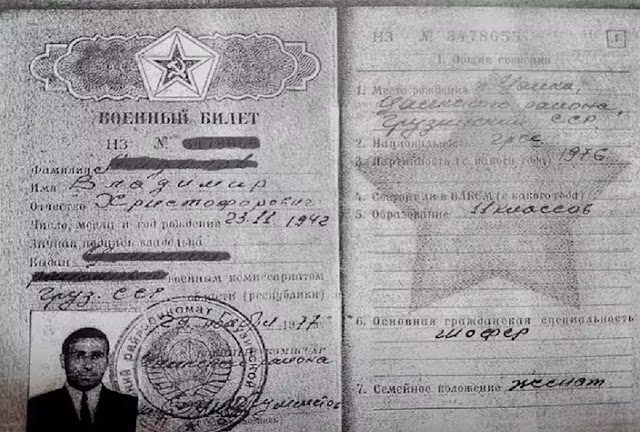 ВОЕННЫЙ БИЛЕТ
НЗ №
Фамилия
Имя Владимир
Отчество Христофорович
Число, месяц и год рождения 23.11 1942
Личная подпись владельца
Выдан
военным комиссариатом
Груз. ССР области (республики)
1977
НЗ № 3478655
1
I. Общие сведения
1. Место рождения
района,
Грузинской ССР
2. Национальность грек
3. Партийность (с какого года) 1976
4. Состоял ли в ВЛКСМ (с какого года)
5. Образование 11 классов
6. Основная гражданская специальность
шофер
7. Семейное положение женат